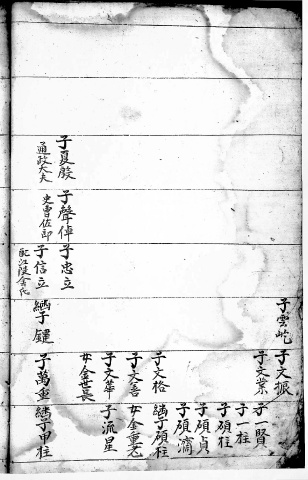 子雲屹
子文振
子文業
子一賢
子一柱
子碩柱
子碩貞
子碩滿
子文格
繼子碩柱
子文善
女金重老
子文華
子流星
女金世長
子夏殷
通政大夫
子聲倬
史曹佐郎
子忠立
子信立
配江陵金氏
繼子鍵
子萬重
繼子甲柱